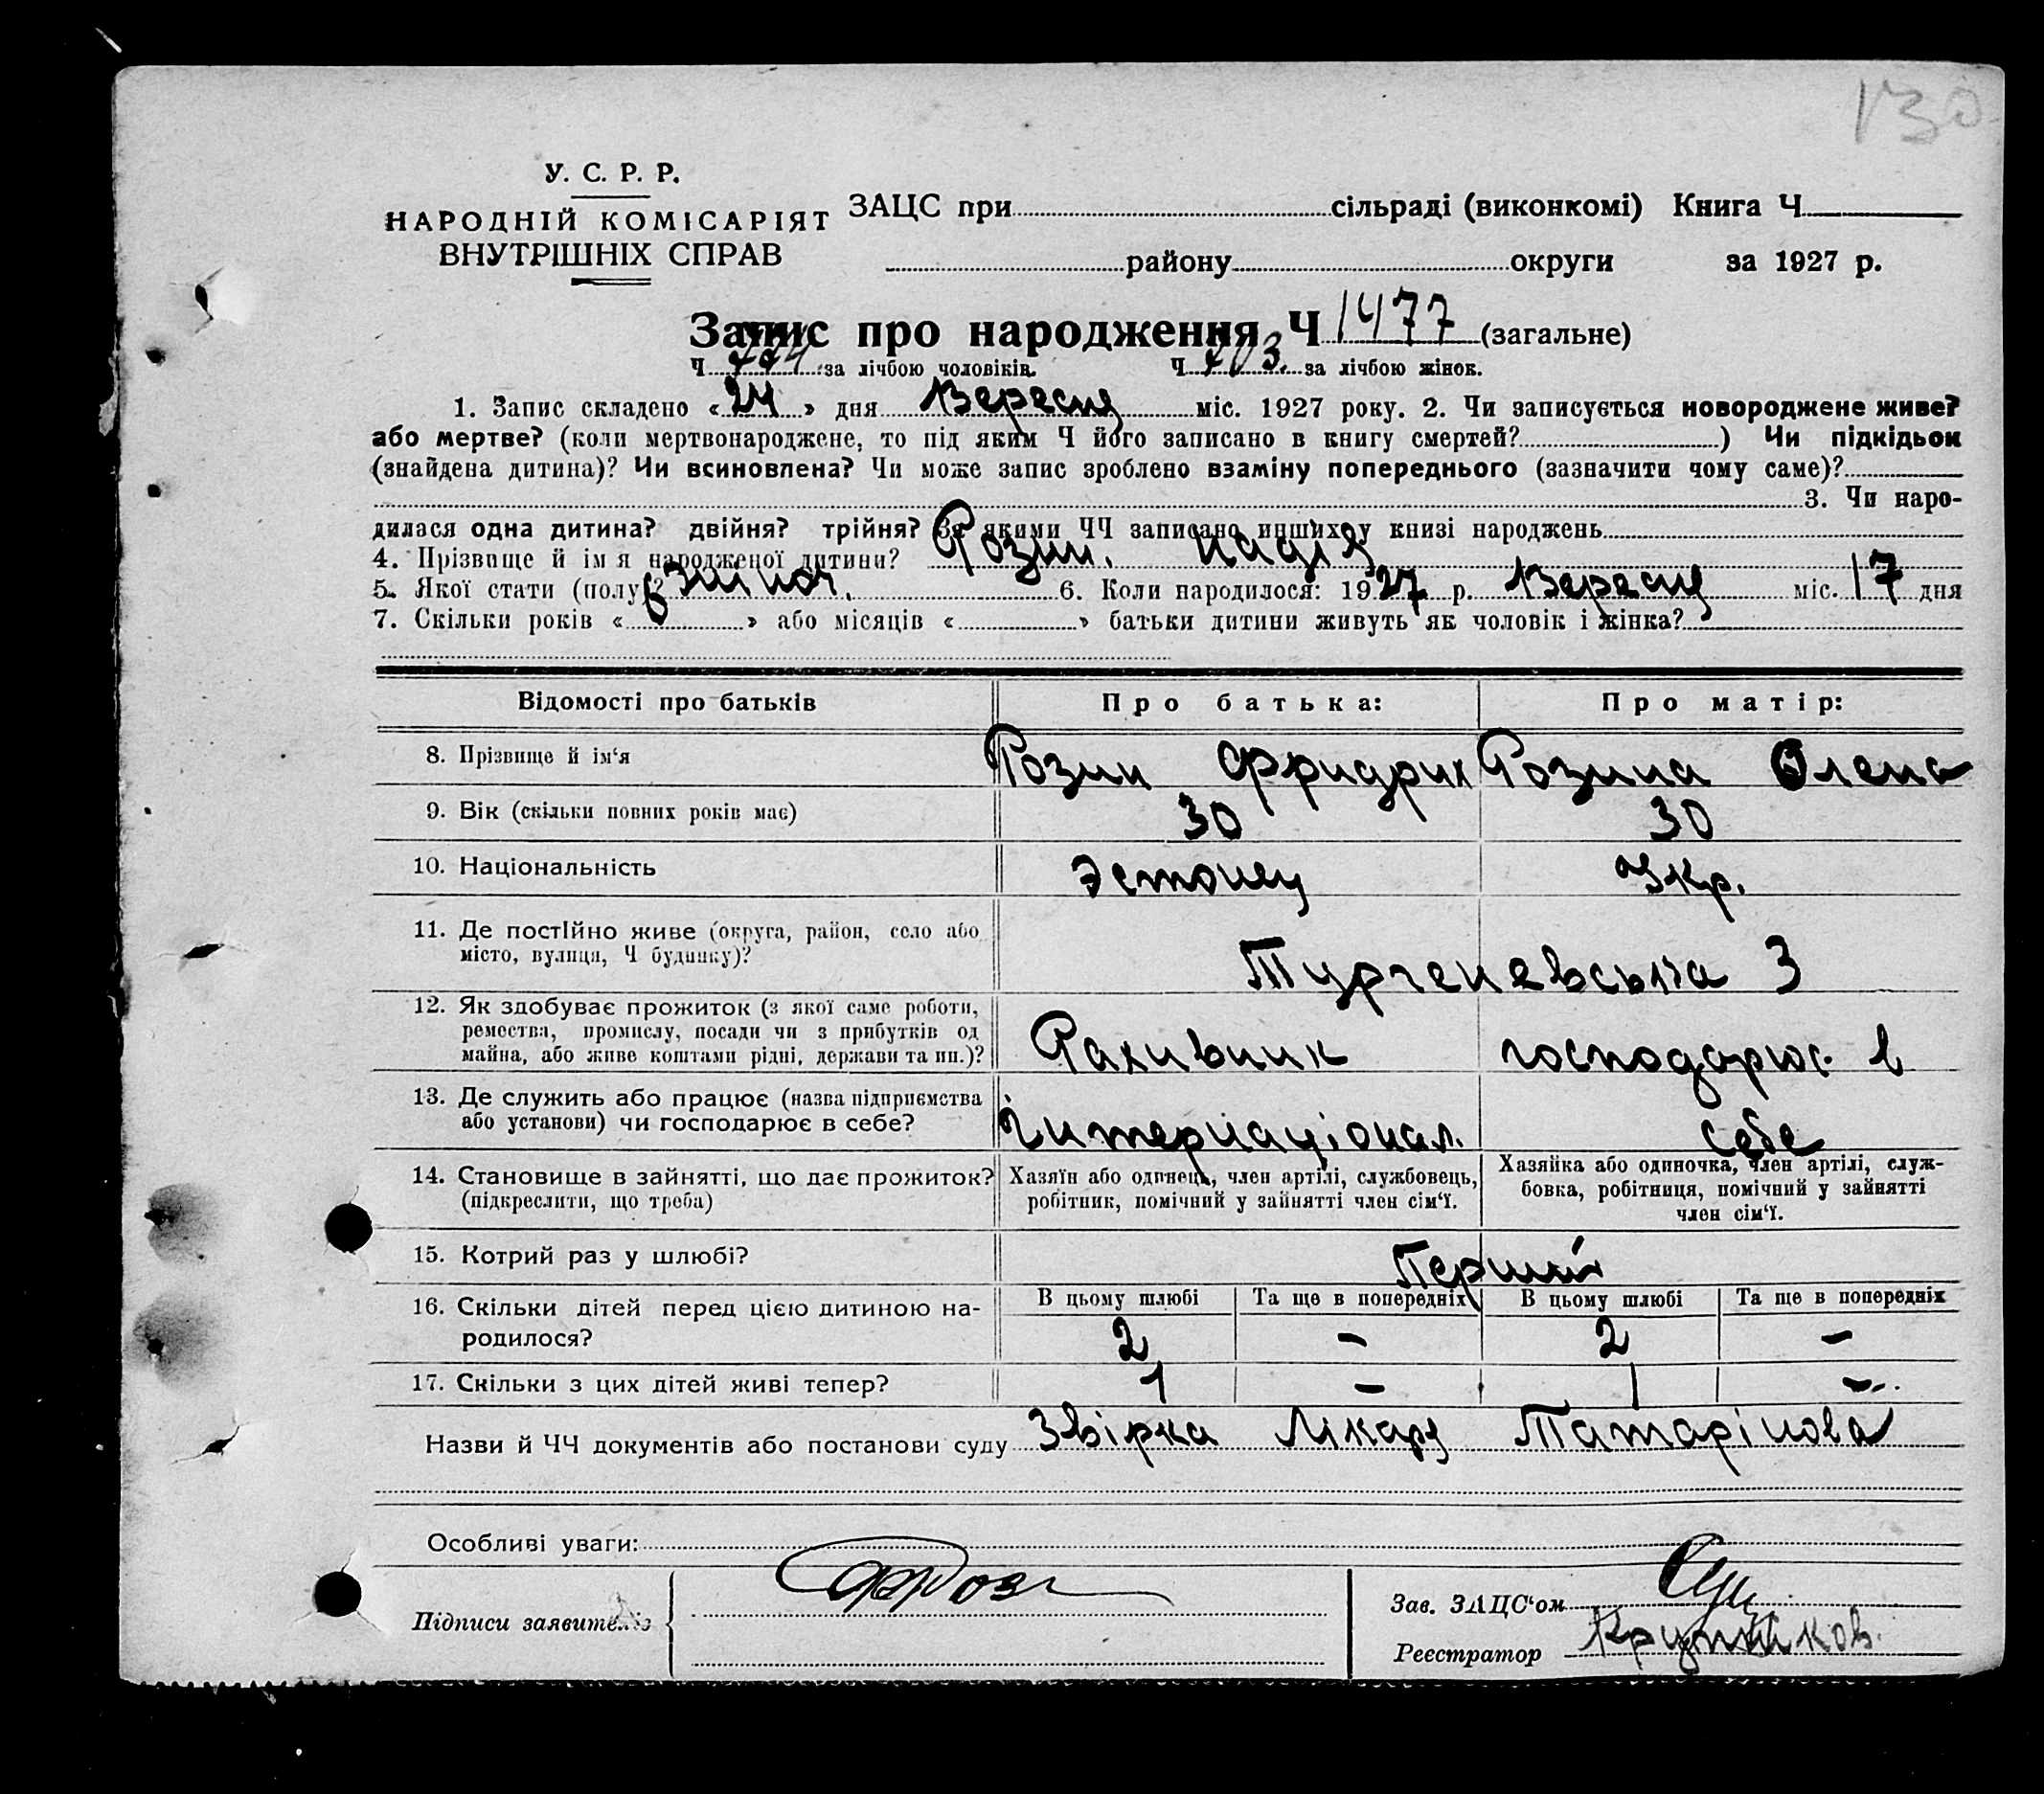 130
У. С. Р. Р.
НАРОДНІЙ КОМІСАРІЯТ
ВНУТРІШНІХ СПРАВ
ЗАЦС при сільраді (виконкомі) Книга Ч
району округи за 1927 р.
Запис про народження Ч 1477 (загальне)
Ч за лічбою чоловіків. Ч 703. за лічбою жінок.
1. Запис складено « 24 » дня Вересня міс. 1927 року. 2. Чи записується новороджене живе?
або мертве? (коли мертвонароджене, то під яким Ч його записано в книгу смертей? ) Чи підкідьок
(знайдена дитина)? Чи всиновлена? Чи може запис зроблено взаміну попереднього (зазначити чому саме)?
3. Чи наро-
дилася одна дитина? двійня? трійня? За якими ЧЧ записано инших у книзі народжень
4. Прізвище й ім я народженої дитини? Розин. Надія
5. Якої стати (полу)? жіноч. 6. Коли народилося: 1927 р. Вересня міс. 17 дня
7. Скільки років « » або місяців « » батьки дитини живуть як чоловік і жінка?
Відомості про батьків Про батька: Про матір:
8. Прізвище й ім‘я Розин Фридрих Розина Олена
9. Вік (скільки повних років має) 30 30
10. Національність Эстонец Укр.
11. Де постійно живе (округа, район, село або
місто, вулиця, Ч будинку)? Тургеневська 3
12. Як здобуває прожиток (з якої саме роботи,
ремества, промислу, посади чи з прибутків од
майна, або живе коштами рідні, держави та ин.)? Рахивник господарює в
13. Де служить або працює (назва підприємства
або установи) чи господарює в себе? Интернаціонал. себе
14. Становище в зайнятті, що дає прожиток?
(підкреслити, що треба)
Хазяїн або одинець, член артілі, службовець,
робітник, помічний у зайнятті член сім‘ї.
Хазяйка або одиночка, член артілі, служ-
бовка, робітниця, помічний у зайнятті
член сім‘ї.
15. Котрий раз у шлюбі? Перший
16. Скільки дітей перед цією дитиною на-
родилося?
В цьому шлюбі Та ще в попередніх В цьому шлюбі Та ще в попередніх
2 – 2 –
17. Скільки з цих дітей живі тепер? 1 – 1 –
Назви й ЧЧ документів або постанови суду Звірка Лікаря Татарінова
Особливі уваги:
Підписи заявителів
Зав. ЗАЦС‘ом
Реєстратор